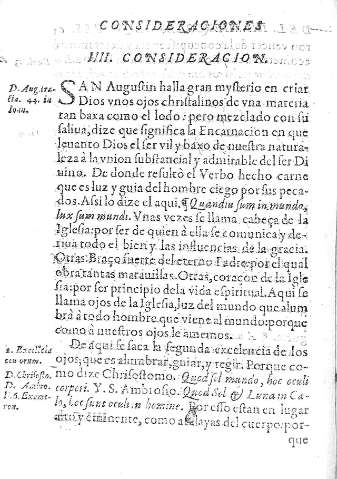 CONSIDERACIONES
IIII. CONSIDERACION.
D. Aug. tra-
cta. 44. in
Ioan.
SAN Augustin halla gran mysterio en criar
Dios vnos ojos christalinos de vna materia
tan baxa como el lodo: pero mezclado con su
saliua, dize que significa la Encarnacion en que
leuantò Dios el ser vil y baxo de nuestra natura-
leza à la vnion substancial y admirable del ser Di
uino. De donde resultò el Verbo hecho carne
que es luz y guia del hombre ciego por sus peca-
dos. Asi lo dize el aqui, Quandiu sum in mundo,
lux sum mundi. Vnas vezes se llama cabeça de la
Iglesia: por ser de quien à ella se comunica y de-
riua todo el bien y las influencias de la gracia.
Otras Braço fuerte del eterno Padre: por el qual
obra tantas marauillas. Otras, coraçon de la Igle
sia: por ser principio de la vida espiritual. Aqui se
llama ojos de la Iglesia, luz del mundo que alum
bra à todo hombre que viene al mundo: porque
como à nuestros ojos le amemos.
2. Excellẽ
cia
De aqui se saca la segunda excelencia de los
ojos; que es alumbrar, guiar, y regir. Porque co-
D. Chrisosto.
mo dize Chrisostomo. Quod sol mundo, hoc oculi
D. Ambro.
corpori. Y S. Ambrosio. Quod Sol & Luna in Cæ-
l. 6. Exame-
ron.
lo, hoc sunt oculi in homine. Por esso estan en lugar
alto y eminente, como atalayas del cuerpo, por-
que